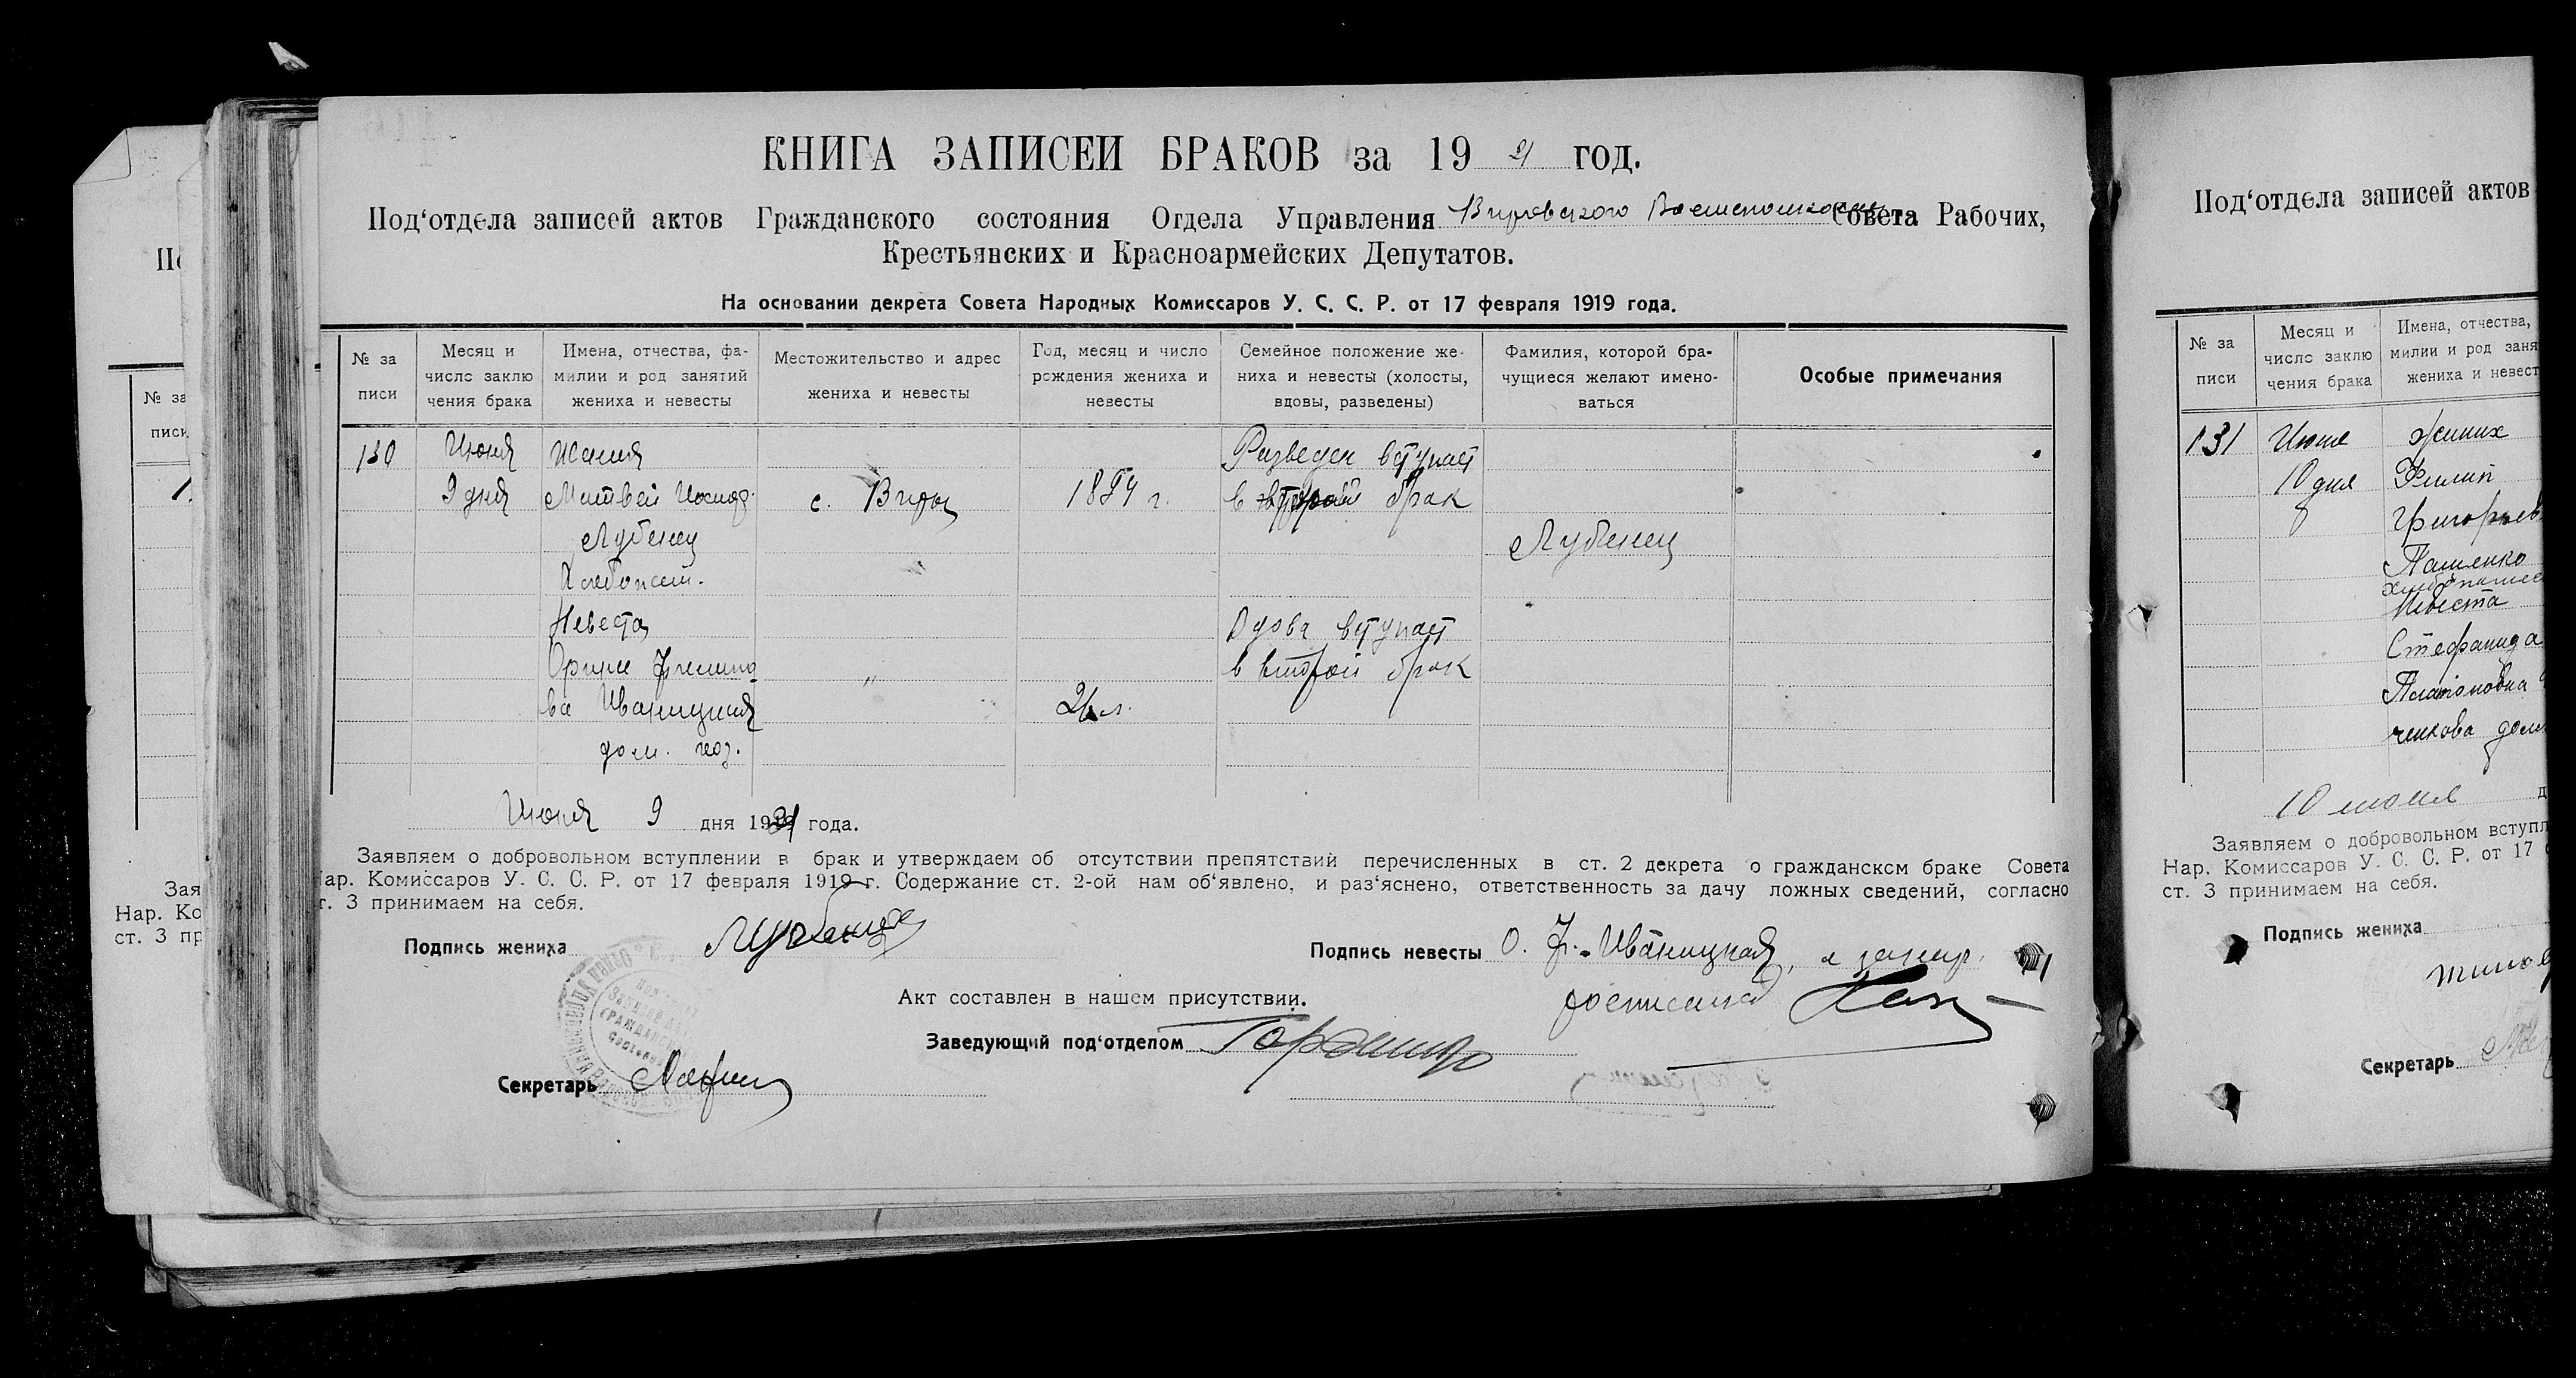 КНИГА ЗАПИСЕЙ БРАКОВ за 19 21 год.
Под‘отдела записей актов Гражданского состояния Отдела Управления Вировского Совета Рабочих,
Крестьянских и Красноармейских Депутатов.
На основании декрета Совета Народных Комиссаров У. С. С. Р. от 17 февраля 1919 года.
№ за
писи
Месяц и
число заклю
чения брака
Имена, отчества, фа-
милии и род занятий
жениха и невесты
Местожительство и адрес
жениха и невесты
Год, месяц и число
рождения жениха и
невесты
Семейное положение же-
ниха и невесты (холосты,
вдовы, разведены)
Фамилия, которой бра-
чущиеся желают имено-
ваться
Особые примечания
130
Июня
9 дня
Матвей Иосиф.
Лубенец
Хлебопаш.
с. Виры
Разведен вступает
в второй брак
Лубенец
Невеста
Филипо
ва Иваницкая
дом. хоз.
"
26 л.
Вдова вступает
в второй брак
Июня 9 дня 1921 года.
Заявляем о добровольном вступлении в брак и утверждаем об отсутствии препятствий перечисленных в ст. 2 декрета о гражданском браке Совета
Нар. Комиссаров У. С. С. Р. от 17 февраля 1919 г. Содержание ст. 2-ой нам об‘явлено, и раз‘яснено, ответственность за дачу ложных сведений, согласно
ст. 3 принимаем на себя.
Подпись жениха Лубенец
Подпись невесты О. Ф. Иваницкая, а
Акт составлен в нашем присутствии.
Заведующий под‘отделом
Секретарь
№ за
писи
Зая
Нар. Ко
ст. 3 пр
Под‘отдела записей актов
№ за
писи
Месяц и
число заклю
чения брака
Имена, отчества,
милии и род заня
жениха и невест
131
Июня
10 дня
Жених
Филип
Григорьев
Пащенко
Невеста
Стефанида
Платоновна
10 июня
Заявляем о добровольном вступл
Нар. Комиссаров У. С. С. Р. от 17
ст. 3 принимаем на себя.
Подпись жениха
Секретарь